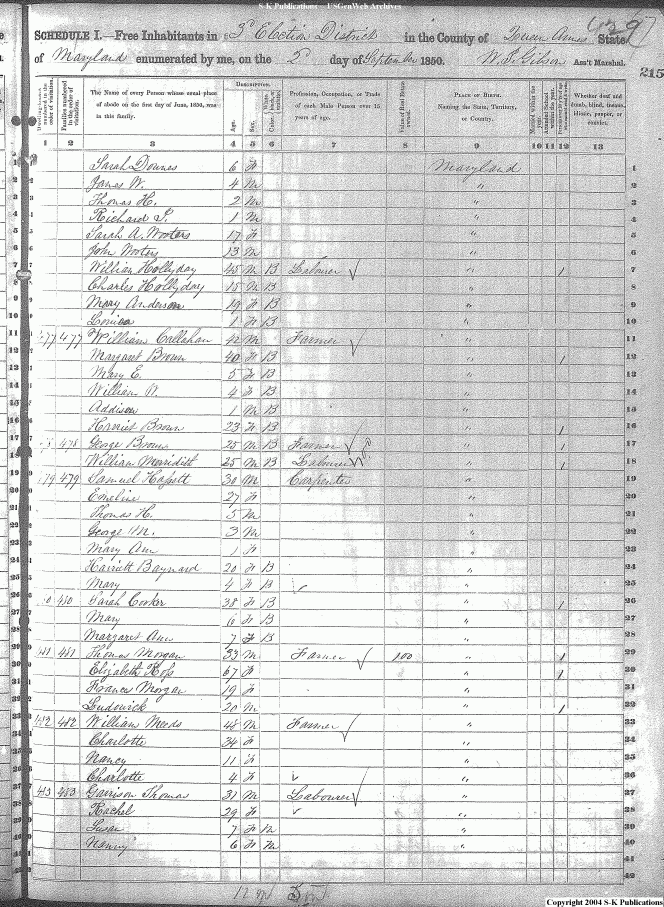 S-K Publications - USGenWeb Archives
SCHEDULE I.—Free Inhabitants in 3d Election District in the County of Queen Anns State
of Maryland enumerated by me, on the 5th day of September 1850. Ass't Marshal.
215
Dwelling-houses numbered in the order of visitation. Families numbered in the order of visitation. The Name of every Person whose usual place of abode on the first day of June, 1850, was in this family. DESCRIPTION. Age. Sex. Color Profession, Occupation, or Trade of each Male Person over 15 years of age. Value of Real Estate owned. PLACE OF BIRTH. Naming the State, Territory, or Country. Married within the year. Attended School within the year. Whether deaf and dumb, blind, insane, idiotic, pauper, or convict.
1 2 3 4 5 6 7 8 9 10 11 12 13
1 Sarah Downes 6 F Maryland 1
2 James W. 4 M " 2
3 Thomas H. 2 M " 3
4 Richard T. 1 M " 4
5 Sarah A. Wooters 17 F " 5
6 John Wooters 13 M " 6
7 William Hollyday 45 M B Labourer " 1 7
8 Charles Hollyday 15 M B " 8
9 Mary Anderson 19 F B " 9
10 Louisa 1 F B " 10
11 477 477 William Callahan 42 M Farmer " 11
12 Margaret Brown 40 F B " 1 12
13 Mary E. 5 F B " 13
14 William 4 B " 14
15 Addison 1 M B " 15
16 Harriet Brown 23 F B " 1 16
17 478 George Brown 25 M B Farmer " 1 17
18 William Merridith 25 M B Labourer " 1 18
19 479 479 Samuel 30 M Carpenter " 19
20 Emeline 27 F " 20
21 Thomas H. 5 M " 21
22 George M. 3 M " 22
23 Mary Ann 1 F " 23
24 Harriett Baynard 20 F B " 24
25 Mary 4 F B " 25
26 480 Sarah Cooker 38 F B " 1 26
27 Mary 6 F B " 27
28 Margaret Ann 7 F B " 28
29 481 481 Thomas Morgan 33 M Farmer 100 " 1 29
30 Elizabeth Ross 67 F " 1 30
31 Frances Morgan 19 F " 31
32 Ludowick 20 M " 1 32
33 482 482 William Meeds 48 M Farmer " 33
34 Charlotte 34 F " 34
35 Nancy 11 F " 35
36 Charlotte 4 F " 36
37 483 483 Garrison Thomas 31 M Labourer " 37
38 Rachel 29 F " 38
39 Susan 7 F M " 39
40 Nanny 6 F M " 40
41 41
42 42
Copyright 2004 S-K Publications